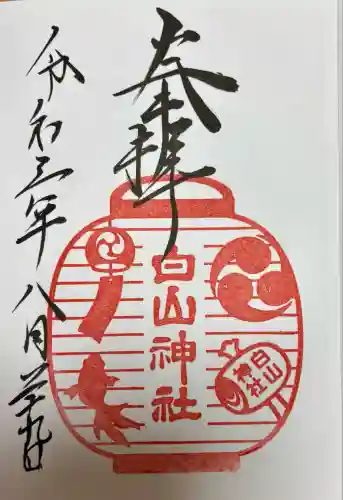 奉拝
白山神社
白山
神社
令和三年八月廿九日